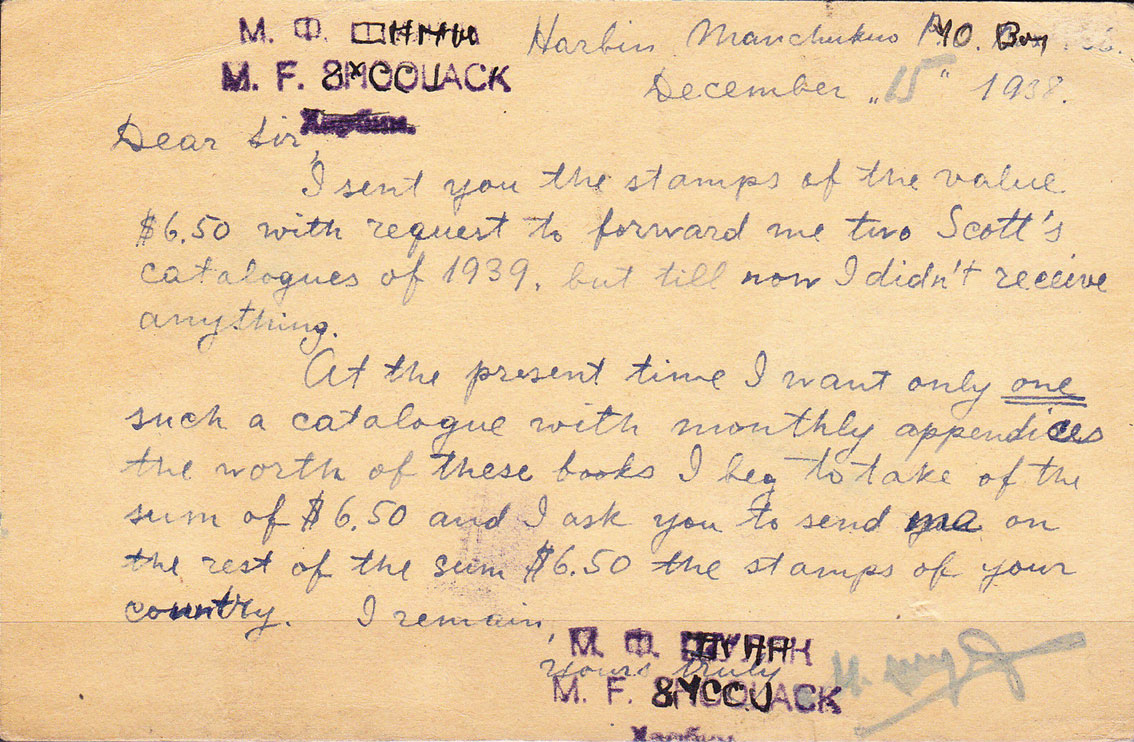 М. Ф.
M. F. SMCOUJACK
Harbin Manchukuo P.O. Box
December „15" 1938.
Харбин.
Dear Sir,
I sent you the stamps of the value
$6.50 with request to forward me two Scott's
catalogues of 1939, but till now I didn't receive
anything.
At the present time I want only one
such a catalogue with monthly appendices
the worth of these books I beg to take of the
sum of $6.50 and I ask you to send me on
the rest of the sum $6.50 the stamps of your
country. I remain,
М. Ф.
yours truly
M. F. SMCOUJACK
Харбин.